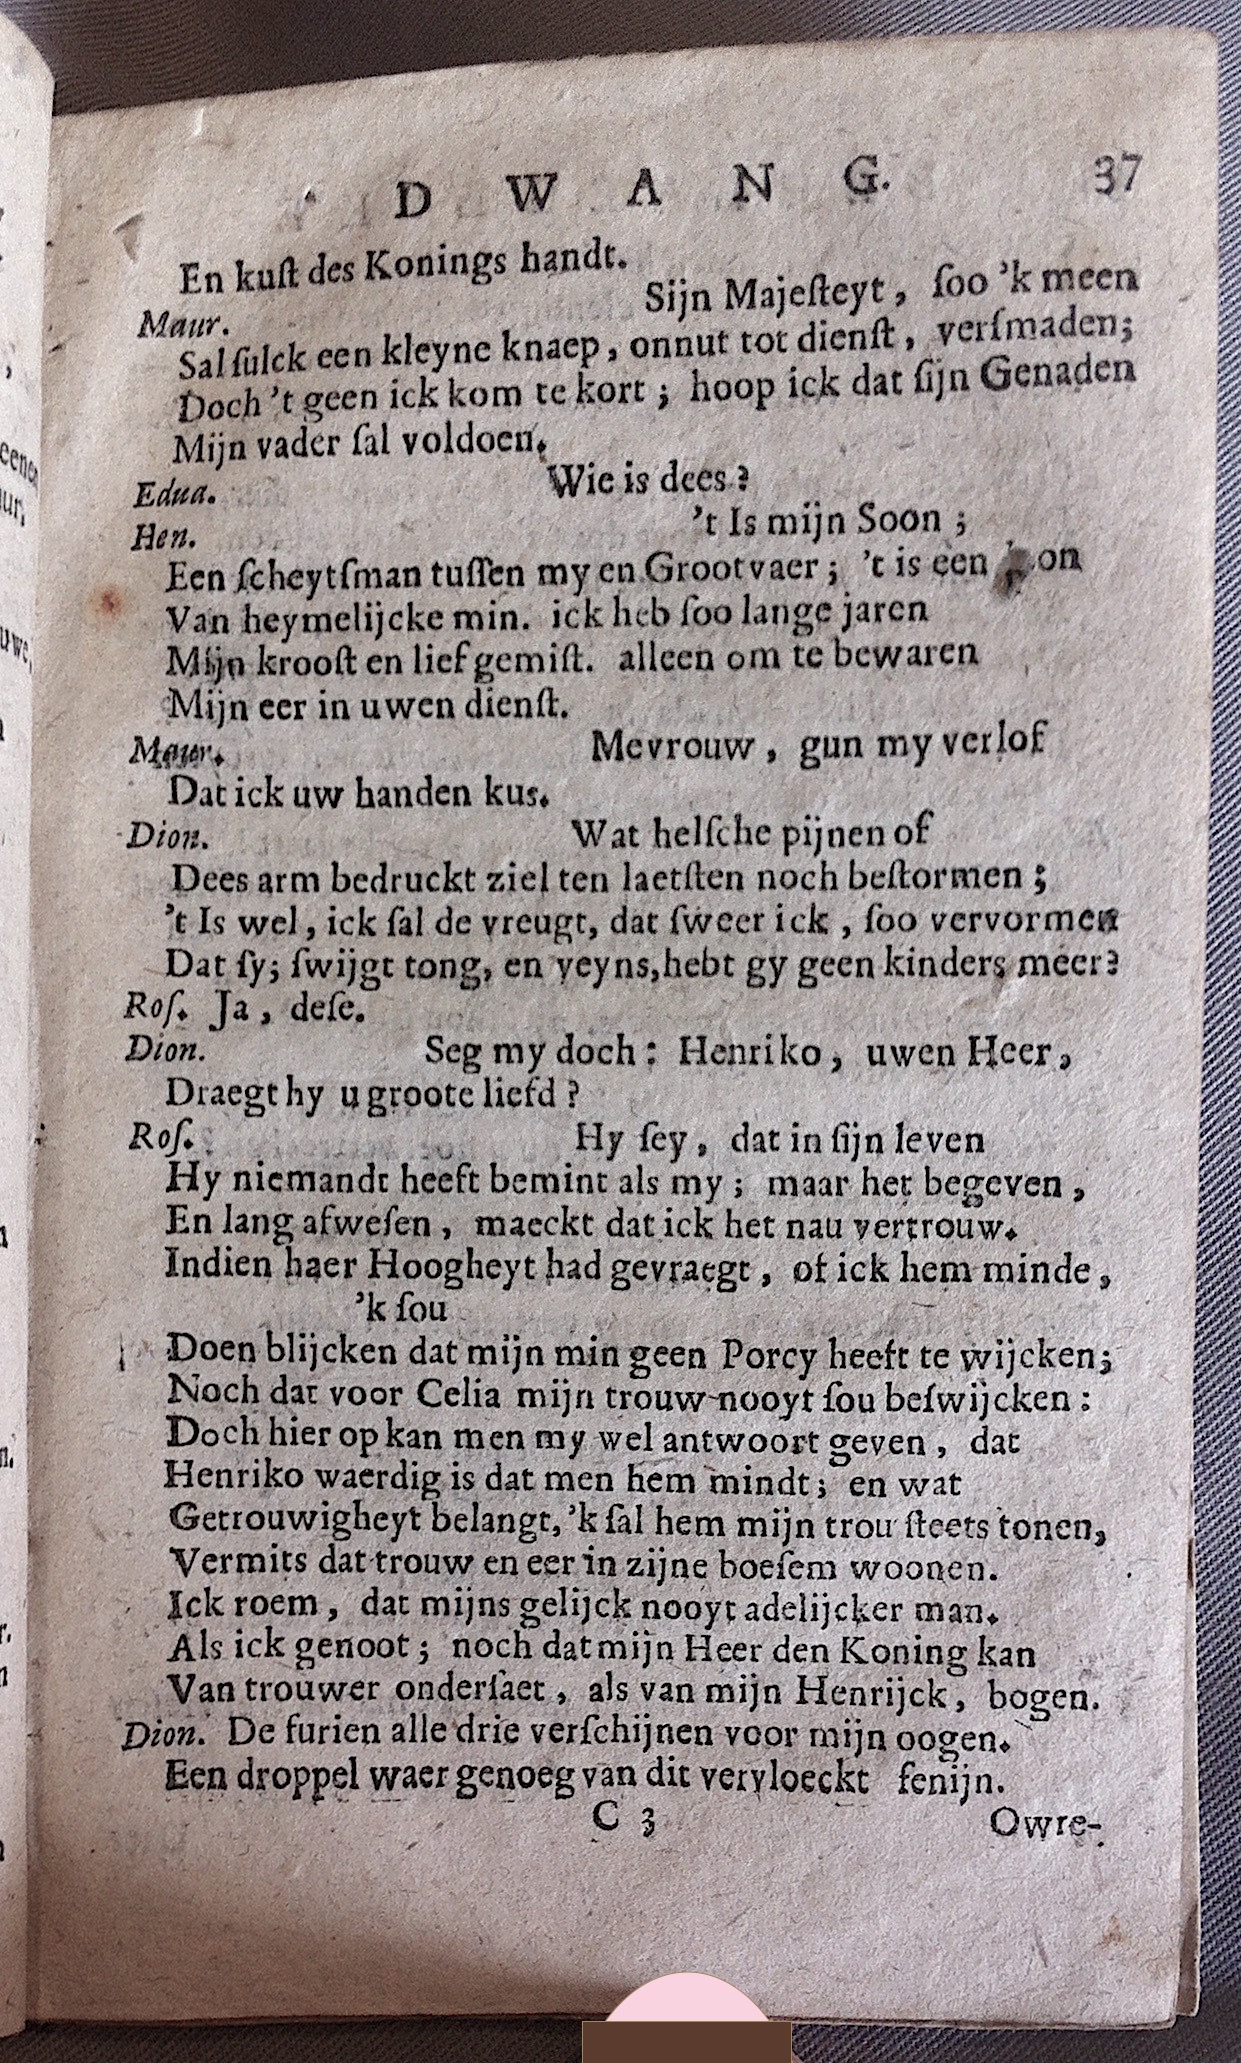 D W A N G. 37
En kuſt des Konings handt.
Maur. Sijn Majeſteyt, ſoo 'k meen
Sal ſulck een kleyne knaep, onnut tot dienſt, verſmaden;
Doch 't geen ick kom te kort; hoop ick dat ſijn Genaden
Mijn vader ſal voldoen.
Edua. Wie is dees?
Hen. 't Is mijn Soon;
Een ſcheytſman tuſſen my en Grootvaer; 't is een
Van heymelijcke min. ick heb ſoo lange jaren
Mijn krooſt en lief gemiſt. alleen om te bewaren
Mijn eer in uwen dienſt.
Maur. Mevrouw, gun my verlof
Dat ick uw handen kus.
Dion. Wat helſche pijnen of
Dees arm bedruckt ziel ten laetſten noch beſtormen;
't Is wel, ick ſal de vreugt, dat ſweer ick, ſoo vervormen
Dat ſy; ſwijgt tong, en veyns, hebt gy geen kinders meer?
Roſ. Ja, deſe.
Dion. Seg my doch: Henriko, uwen Heer,
Draegt hy u groote liefd?
Roſ. Hy ſey, dat in ſijn leven
Hy niemandt heeft bemint als my; maar het begeven,
En lang afweſen, maeckt dat ick het nau vertrouw.
Indien haer Hoogheyt had gevraegt, of ick hem minde,
'k ſou
Doen blijcken dat mijn min geen Porcy heeft te wijcken;
Noch dat voor Celia mijn trouw nooyt ſou beſwijcken:
Doch hier op kan men my wel antwoort geven, dat
Henriko waerdig is dat men hem mindt; en wat
Getrouwigheyt belangt, 'k ſal hem mijn trou ſteets tonen,
Vermits dat trouw en eer in zijne boeſem woonen.
Ick roem, dat mijns gelijck nooyt adelijcker man.
Als ick genoot; noch dat mijn Heer den Koning kan
Van trouwer onderſaet, als van mijn Henrijck, bogen.
Dion. De furien alle drie verſchijnen voor mijn oogen.
Een droppel waer genoeg van dit vervloeckt fenijn.
C 3 Owre-